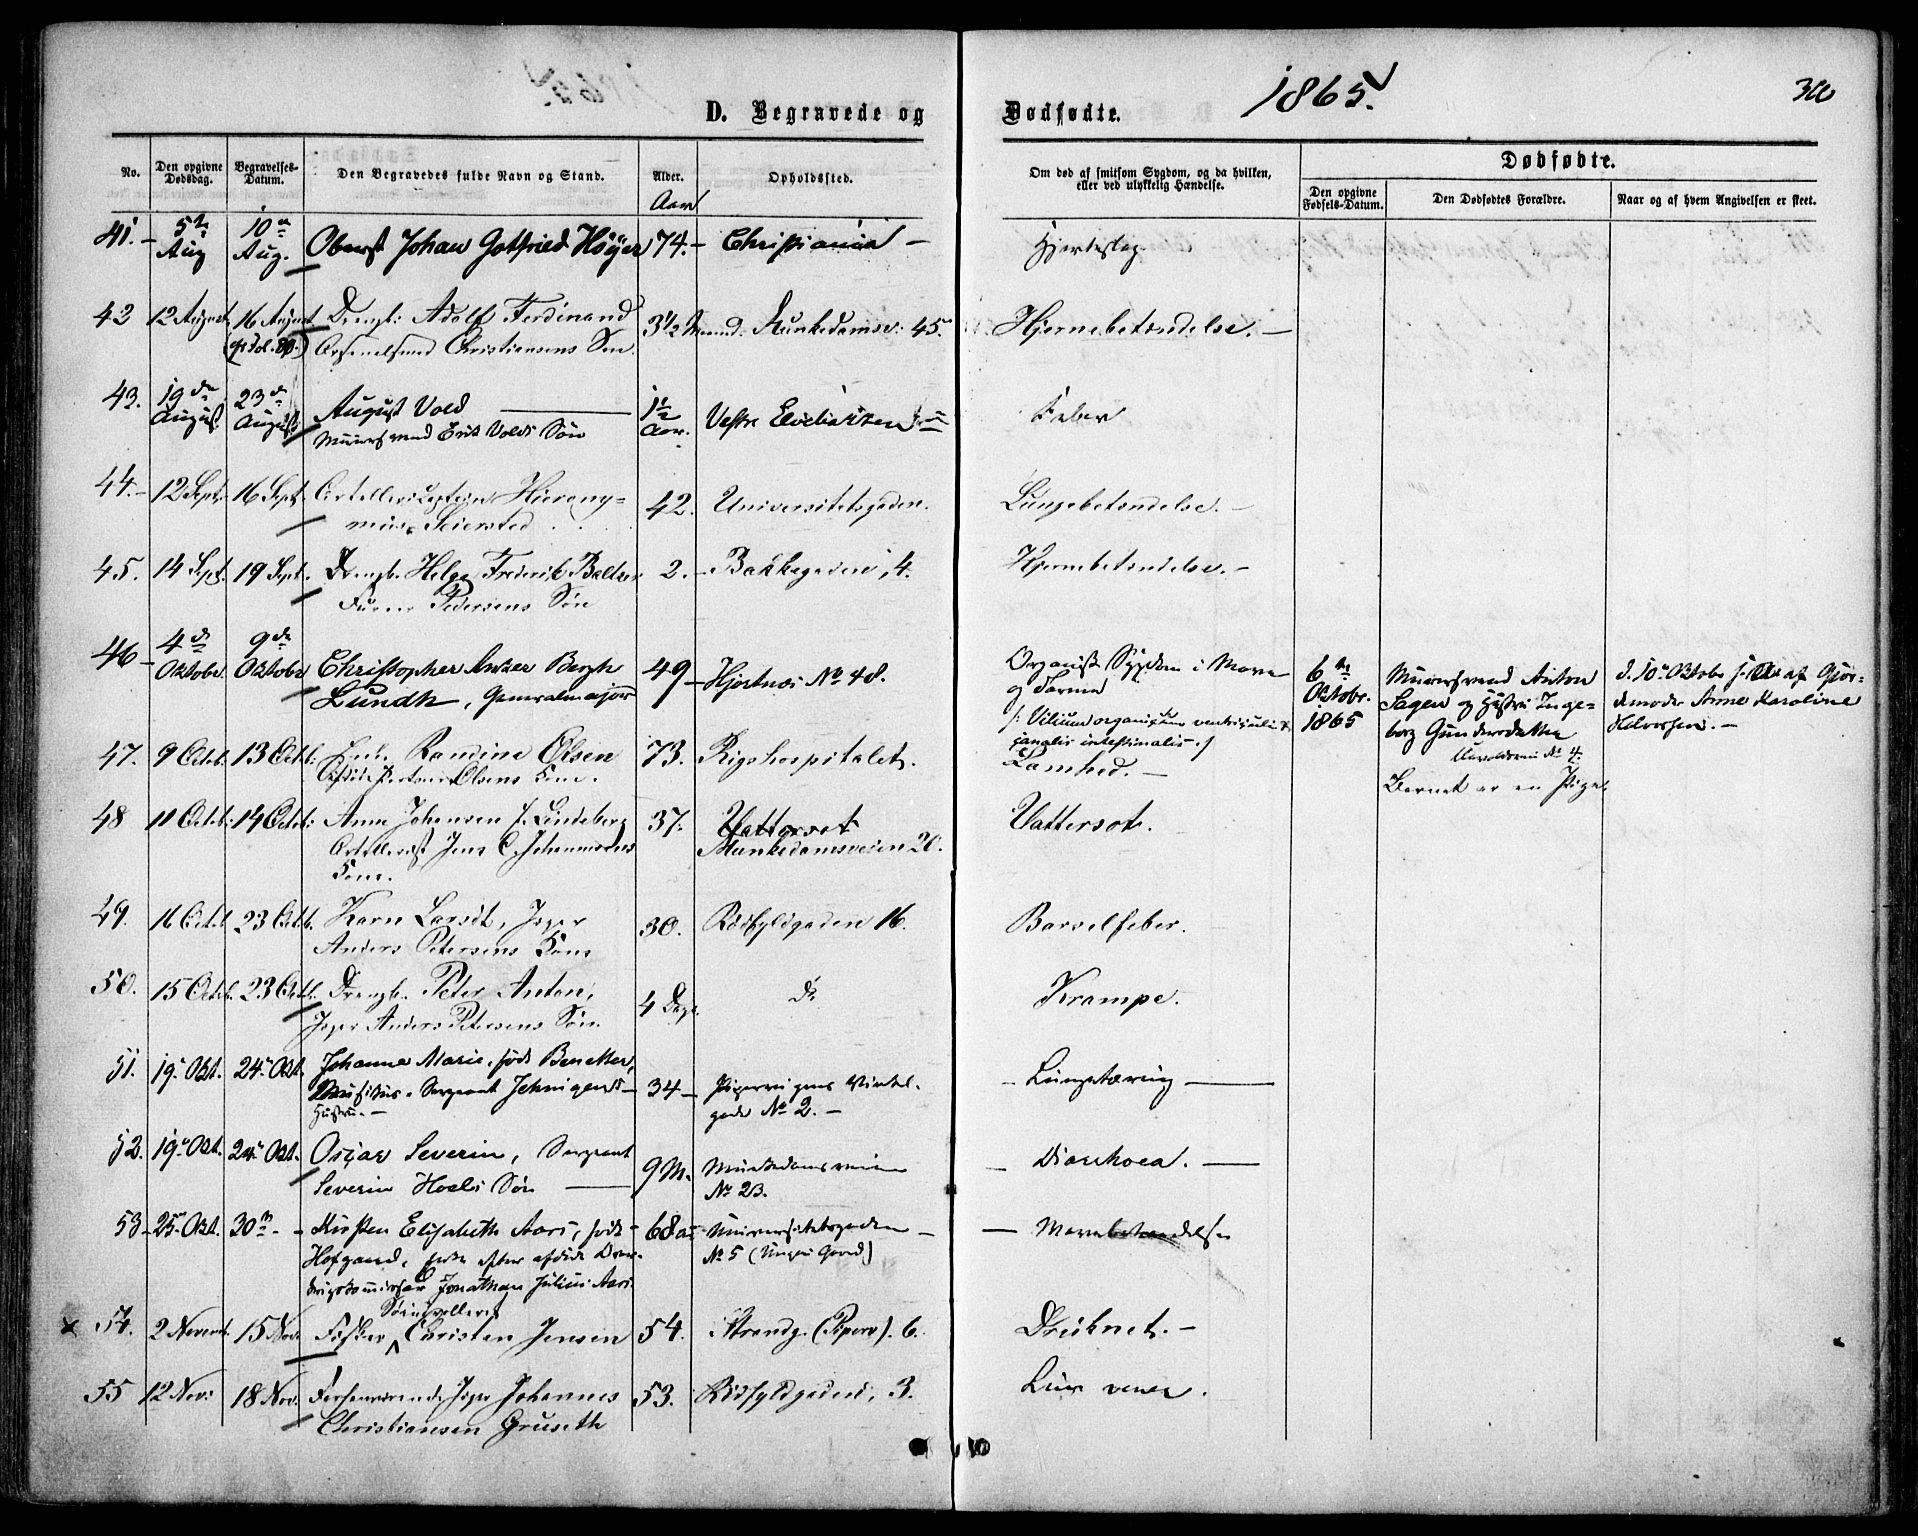 D. Begravede og Dødfødte.
1865.
No.
Den opgivne Dødsdag.
Begravelses-Datum.
Den Begravedes fulde Navn og Stand.
Alder.
Opholdssted.
Om død af smitsom Sygdom, og da hvilken, eller ved ulykkelig Hændelse.
Dødfødte.
Den opgivne Fødsels-Datum.
Den Dødfødtes Forældre.
Naar og af hvem Angivelsen er skeet.
Aar
41. 5te Aug 10de Aug. Oberst Johan Gotfried Höyer 74 Christiania Hjerteslag
42 12 August 16 August Drengb: Adolf Ferdinand 3½ Maaned. Munkedamsv: 45 Hjernebetændelse.
Christiansens Søn.
43. 19de August 23de August August Vold 1½ Aar. Vestre Feber
Muursvend Erik Volds Søn
44. 12 Sept. 16 Sept. Hierony=
mus Seiersted 42. Universitetsgaden. Lungebetændelse.
45. 14 Sept. 19 Sept. Drengb. Helge Frederik Baltzer 2. Bakkegaden, 4. Hjernebetændelse.
Pedersens Søn
46 4de Oktobr. 9de Oktobr Christopher Anker Bergh 49 Hjortnæs No 48.
Lundh, Generalmajor
Organisk Sygdom i Mave
og Tarme
/: Vitium organicum ventriculi &
canalis intestinalis :/
6te Oktobr. 1865
Muursvend Anton
Sagen og Hustru Inge=
borg Gundersdatter
No 4.
Barnet er en Pige.
d. 10de Oktobr af Gjor=
demoder Anne Karoline
Halvorsen.
47. 9 Octob. 13 Octob: Randine Olsen 73. Rigshospitalet. Lamhed.
Olsens Kone.
48 11 Octob: 14 Octob: Anna Johansen f. Lindeberg 37. Vattersot Vattersot.
Jens C. Johannesens Munkedamsveien 20.
Kone.
49. 16 Octob 23 Octob. Karn Larsdt, Jæger 30. Rødfyldgaden 16. Barselfeber.
Anders Petersens Kone
50. 15 Octob. 23 Octb. Drengb. Peter Anton, 4 Dage do Krampe.
Jæger Anders Petersens Søn.
51. 19de Okt. 24de Okt. Johanne Marie, født Benetter, 34 Pipervigens Vinkel- Lungetæring
Musikus-Sergeant gade No 2.
Hustru.
52. 19de Okt. 24de Okt. Oscar Severin, Sergeant 9 M. Munkedamsveien Diarrhoea.
Severin Hoels Søn No 23.
53 25de Okt. 30te Kirsten Elisabeth Aars, født 68 Universitetsgaden Mavebetændelse
Hofgaard, Enke efter afdøde No 5 (Gaard)
Jonathan Julius Aars.
Sørumvelleret
54. 2 Novemb. 15 Nov. Fisker Christen Jensen 54. Strandg. (Piperv). 6. Druknet.
55 12 Nov: 18 Nov. Forhenværende Jæger Johannes 53. Rødfyldgaden, 3.
Christiansen Gruseth